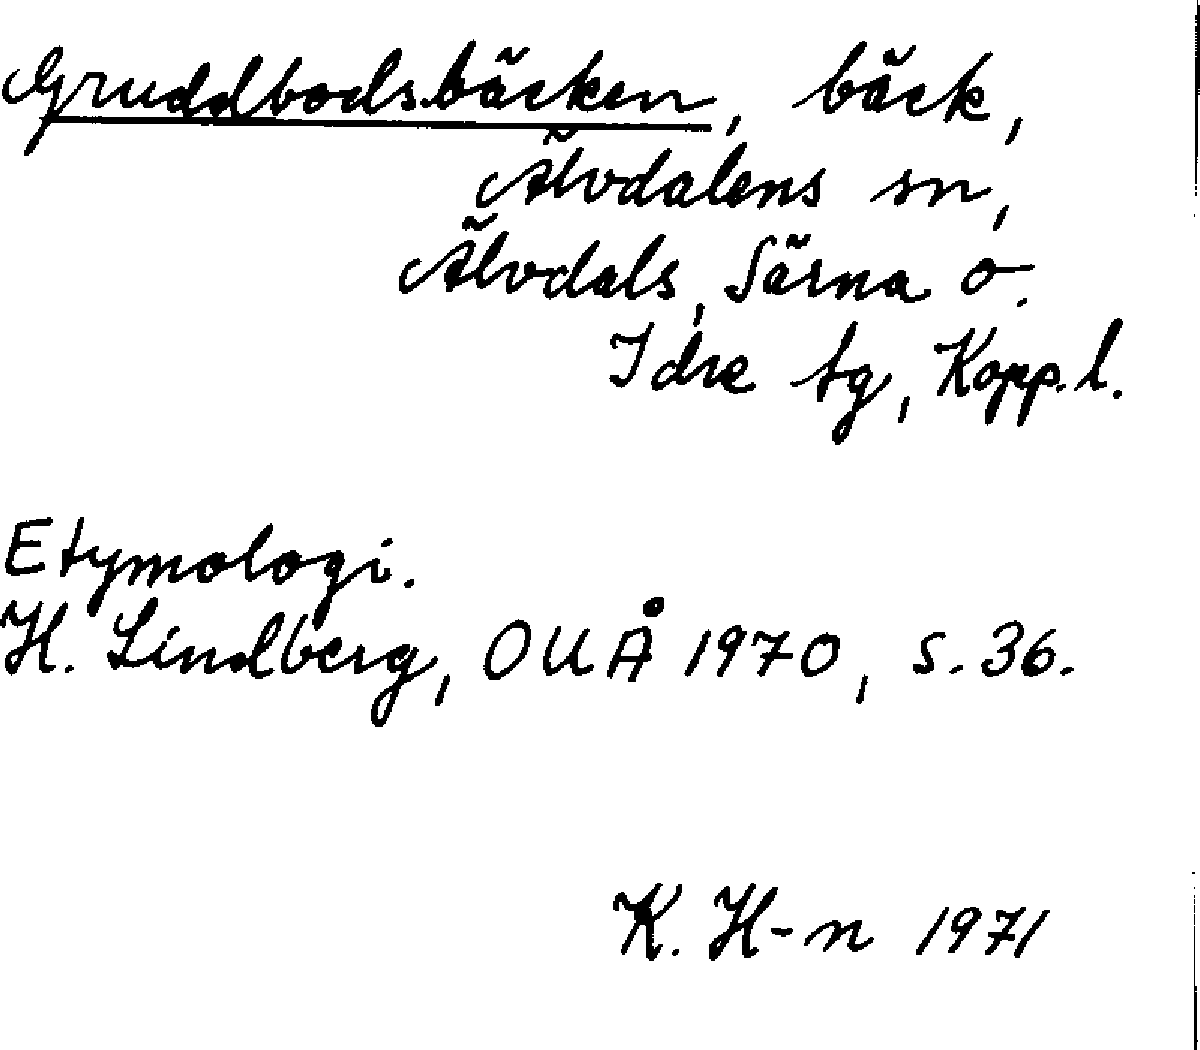 Gruddbodsbäcken, bäck,
Älvdalens sn,
Älvdals, Särna o.
Idre tg, Kopp. l.
Etymologi.
H. Lindberg, OUÅ 1970, s. 36.
K. H-n 1971